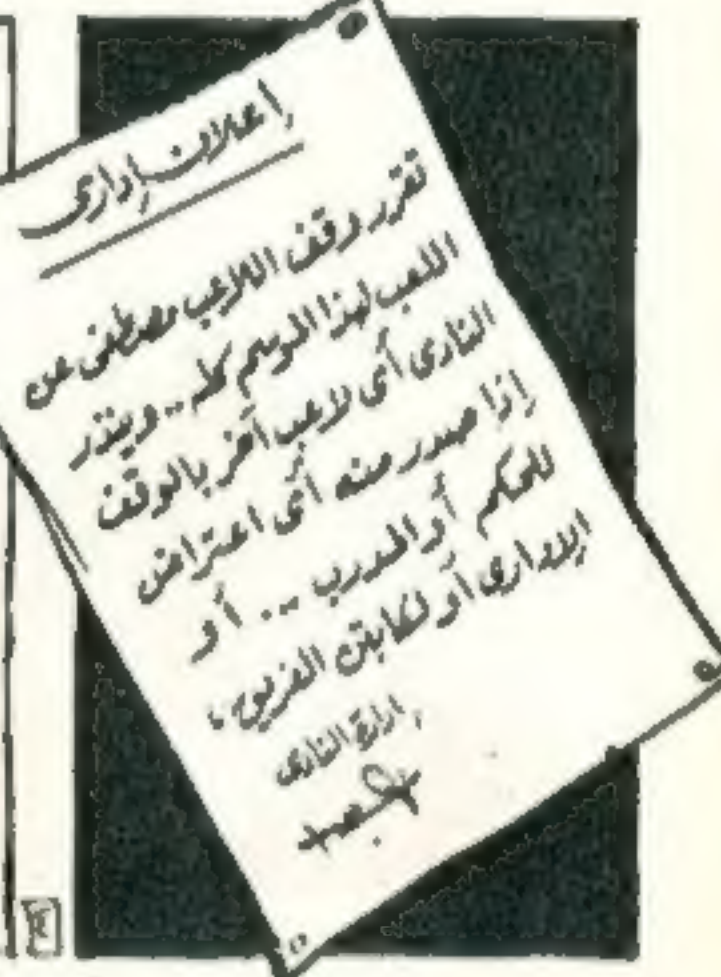 إعلان إدارى
تقرر وقف اللاعب مصطفى عن
اللعب لهذا الموسم كله .. وينذر
النادى أى لاعب آخر بالوقف
إذا صدر منه أى اعتراض
للحكم أو المدرب ... أو
الإدارى أو لكابتن الفريق ،
إدارة النادى